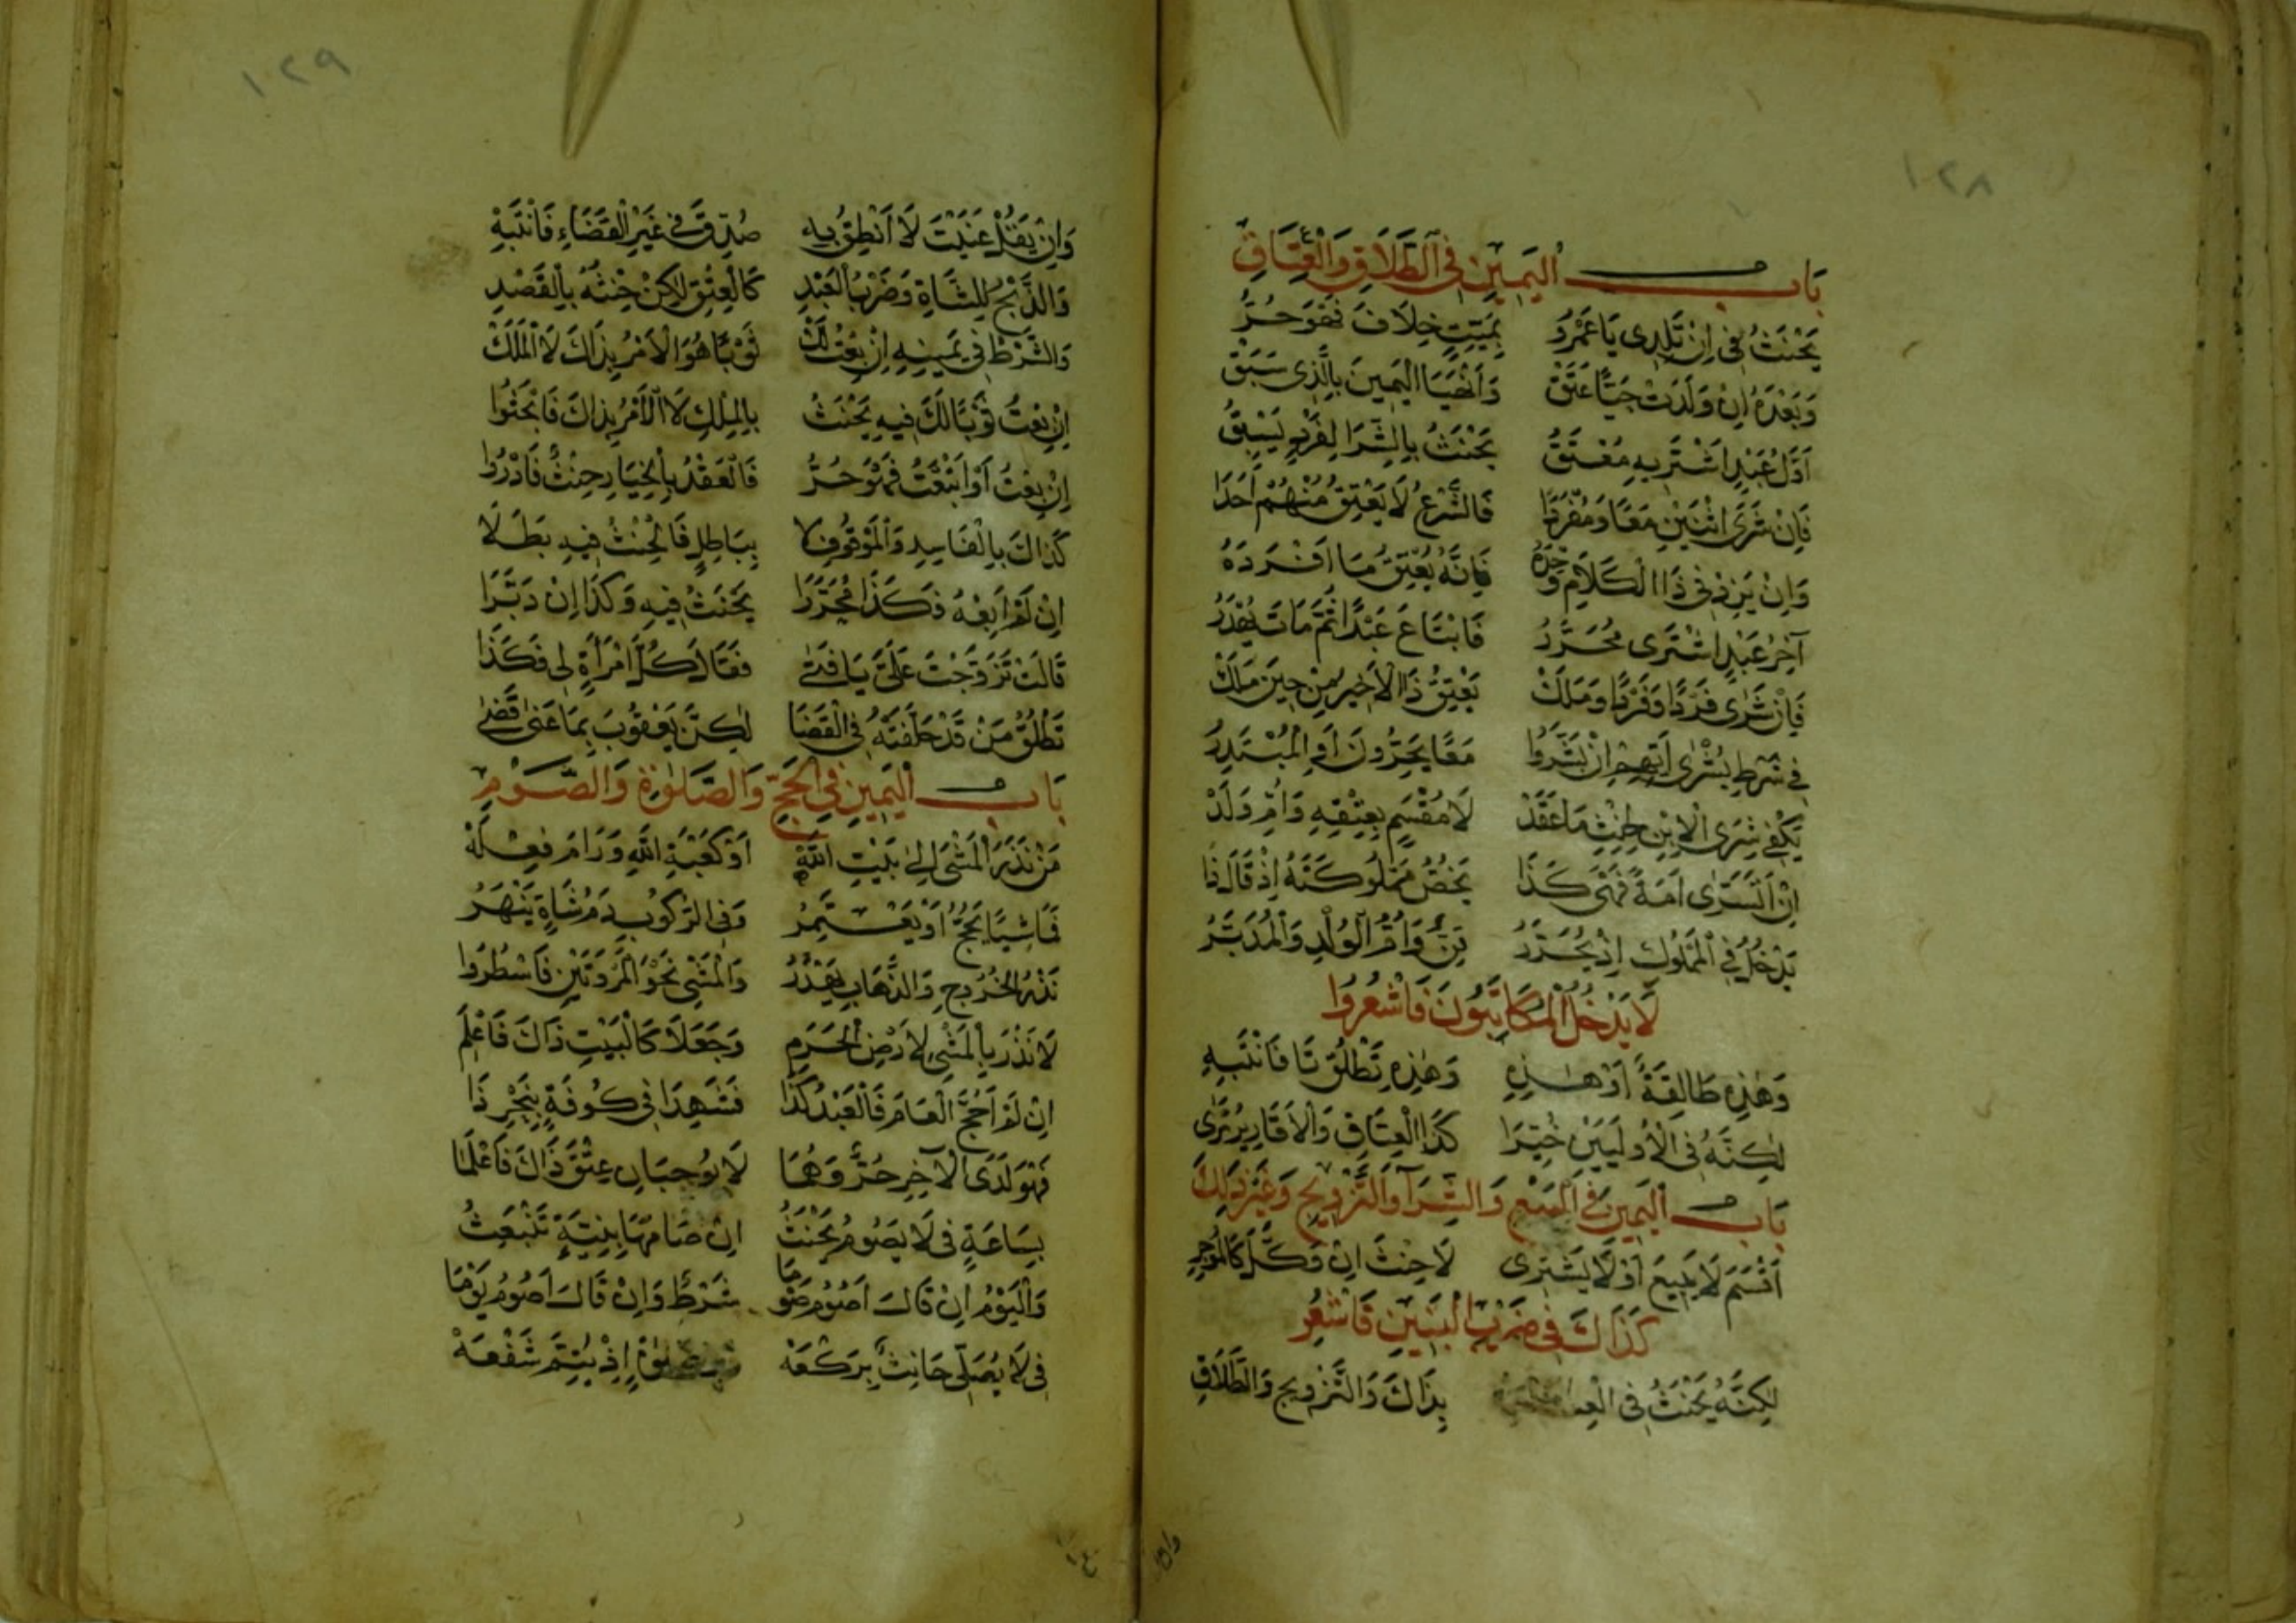 ١٢٨
بَابُ الْيَمِيْنِ فِى الطَّلَاقِ وَالْعِتَاقِ
يَحْنَثُ فِى اِنْ تَلِدِى يَا عَمْرُو بِمَيِّتٍ خِلَافَ فَهْوَ حُرُّ
وَبَعْدَهُ اِنْ وَلَدَتْ حَيًّا عَتَقْ وَانْهَيَا الْيَمِينَ بِالَّذِى سَبَقْ
اَوَّلُ عَبْدٍ اَشْتَرِيهِ مُعْتَقُ يَحْنَثُ بِالشِّرَا لِفَرْدٍ يَسْبِقُ
فَاِنْ شَرَى اثْنَيْنِ مَعًا وَمُفْرَدًا فَالشَّرْعُ لَا يَعْتِقُ مِنْهُمْ اَحَدَا
وَاِنْ يَزِدْ فِى ذَا الْكَلَامِ وَحْدَهُ فَاِنَّهُ يُعْتِقُ مَا اَفْرَدَهُ
آخِرُ عَبْدٍ اشْتَرَى مُحَرَّرُ فَابْتَاعَ عَبْدًا ثُمَّ مَاتَ يُهْدَرُ
فَاِنْ شَرَى فَرْدًا وَفَرْدًا وَمَلَكْ يَعْتِقُ ذَا الْاَخِيرُ مِنْ حِينَ مَلَكْ
فِى شَرْطِ بُشْرَى اَيُّهُمْ اِنْ بَشَّرُوا مَعًا يُحَرَّرُونَ اَوِ الْمُبْتَدِرُ
يَكْفِى شِرَى الْاِبْنِ لِحِنْثٍ مَا عَقَدْ لَا مُقْسَمٍ بِعِتْقِهِ وَاُمِّ وَلَدْ
اِنْ اَتَسَرَّى اَمَةً فَهْىَ كَذَا يَخُصُّ مَمْلُوكَتَهُ اِذْ قَالَ ذَا
يَدْخُلُ فِى الْمَمْلُوكِ اِذْ يُحَرَّرُ قِنٌّ وَاُمُّ الْوُلْدِ وَالْمُدَبَّرُ
لَا يَدْخُلُ الْمُكَاتَبُونَ فَاشْعُرُوا
وَهٰذِهِ طَالِقَةٌ اَوْ هٰذِهِ وَهٰذِهِ تَطْلُقُ تَا فَانْتَبِهِ
لٰكِنَّهُ فِى الْاُولَيَيْنِ خُيِّرَا كَذَا الْعِتَاقُ وَالْاَقَارِيرُ تُرَى
بَابُ الْيَمِينِ فِى الْبَيْعِ وَالشِّرَآءِ وَالتَّزْوِيجِ وَغَيْرِ ذٰلِكَ
اَقْسَمَ لَا يَبِيعُ اَوْ لَا يَشْتَرِى لَا حِنْثَ اِنْ وَكَّلَ كَالْمُوجِرِ
كَذَاكَ فِى ضَرْبِ الْبَنِينَ فَاشْعُرِ
لٰكِنَّهُ يَحْنَثُ فِى بِذَاكَ وَالتَّزْوِيجِ وَالطَّلَاقِ
١٢٩
وَاِنْ يَقُلْ عَنَيْتُ لَا اَنْطِقُ بِهِ صُدِّقَ فِى غَيْرِ الْقَضَاءِ فَانْتَبِهْ
وَالذَّبْحُ لِلشَّاةِ وَضَرْبُ الْعَبْدِ كَالْعِتْقِ لٰكِنْ حِنْثُهُ بِالْقَصْدِ
وَالشَّرْطُ فِى يَمِينِهِ اِنْ بِعْتُ لَكْ ثَوْبًا هُوَ الْاَمْرُ بِذَاكَ لَا الْمَلَكْ
اِنْ بِعْتُ ثَوْبًا لَكَ فِيهِ يَحْنَثُ بِالْمِلْكِ لَا الْاَمْرُ بِذَاكَ فَابْحَثُوا
اِنْ بِعْتُ اَوْ اَبْتَعْتُ فَهْوَ حُرُّ فَالْعَقْدُ بِالْخِيَارِ حِنْثٌ فَادْرُوا
كَذَاكَ بِالْفَاسِدِ وَالْمَوْقُوفِ لَا بِبَاطِلٍ فَالْحِنْثُ فِيهِ بَطَلَا
اِنْ لَمْ اَبِعْهُ فَكَذَا مُحَرَّرَا يَحْنَثُ فِيهِ وَكَذَا اِنْ دَبَّرَا
قَالَتْ تَزَوَّجْتَ عَلَىَّ يَا فَتٰى فَقَالَ كُلُّ امْرَأَةٍ لِى فَكَذَا
تَطْلُقُ مَنْ قَدْ حَلَّفَتْهُ فِى الْقَضَا لٰكِنَّ يَعْقُوبَ بِمَا عَنٰى قَضٰى
بَابُ الْيَمِينِ فِى الْحَجِّ وَالصَّلٰوةِ وَالصَّوْمِ
مَنْ نَذَرَ الْمَشْىَ اِلٰى بَيْتِ اللّٰهْ اَوْ كَعْبَةِ اللّٰهِ وَرَامَ فِعْلَهْ
فَمَاشِيًا يَحُجُّ اَوْ يَعْتَمِرُ وَفِى الرُّكُوبِ دَمُ شَاةٍ يَنْهَرُ
نَذْرُ الْخُرُوجِ وَالذَّهَابِ يُهْدَرُ وَالْمَشْىِ نَحْوَ الْمَرْوَتَيْنِ فَاسْطُرُوا
لَا نَذْرَ بِالْمَشْىِ لِاَرْضِ الْحَرَمِ وَجَعَلَا كَالْبَيْتِ ذَاكَ فَاعْلَمِ
اِنْ لَمْ اَحُجَّ الْعَامَ فَالْعَبْدُ كَذَا فَشَهِدَا فِى كُوفَةٍ بِنَحْرِ ذَا
فَهْوَ لَدَى الْآخِرِ حُرٌّ وَهُمَا لَا يُوجِبَانِ عِتْقَ ذَاكَ فَاعْلَمَا
بِسَاعَةٍ فِى لَا يَصُومُ يَحْنَثُ اِنْ صَامَهَا بِنِيَّةٍ تَنْبَعِثُ
وَالْيَوْمُ اِنْ قَالَ اَصُومُ صَوْمَا شَرْطٌ وَاِنْ قَالَ اَصُومُ يَوْمَا
فِى لَا يُصَلِّى حَانِثٌ بِرَكْعَهْ اِذْ يُتِمُّ شَفْعَهْ
وان